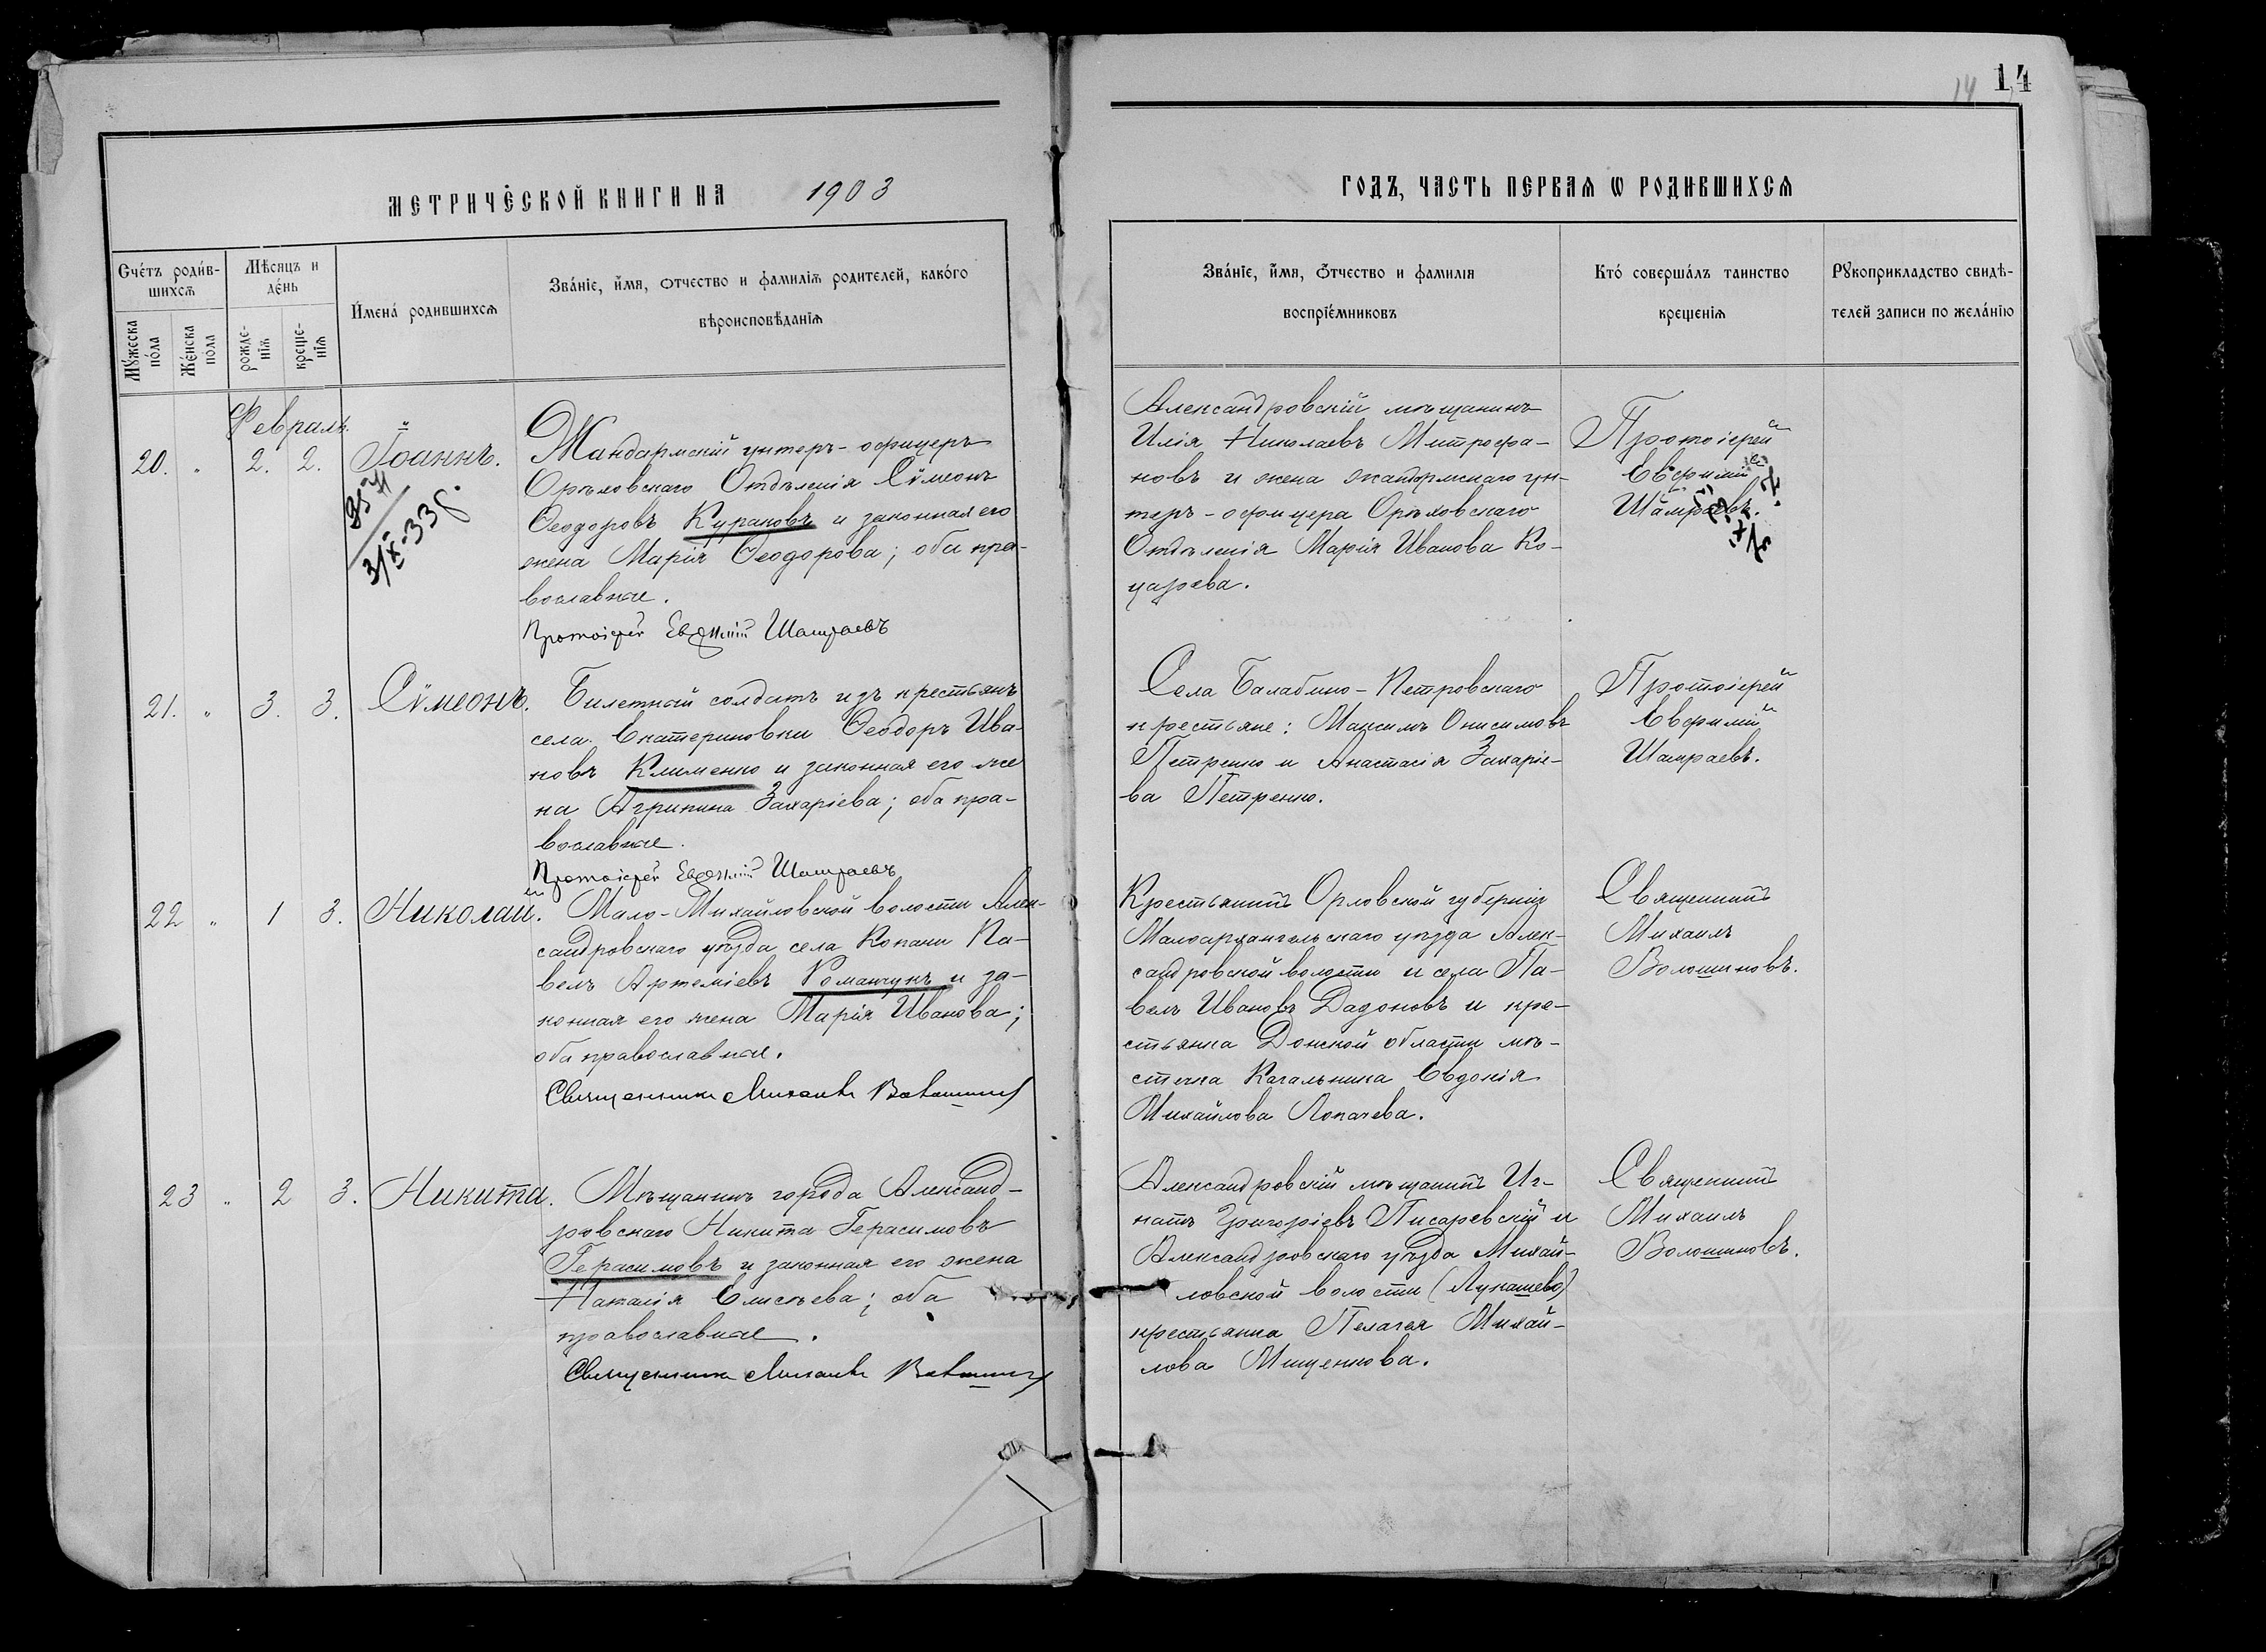 14 14
МЕТРИЧЕСКОЙ КНИГИ НА 1903
ГОДЪ, ЧАСТЬ ПЕРВАѦ Ѡ РОДИВШИХСѦ
Счетъ родившихсѧ
Мѣсяцъ и день
Имена родившихсѧ
Званіе, имя, отчество и фамиліѧ родителей, какого
вѣроисповѣданіѧ
Мужеска пола
Женска пола
рожденіѧ
крещенія
Званіе, имя, отчество и фамилія
воспріемниковъ
Кто совершалъ таинство
крещенія
Рукоприкладство свидѣ-
телей записи по желанію
Февраль.
20. " 2. 2. Іоаннъ.
Жандармскій унтеръ-офицеръ
Орѣховскаго Отдѣленія Сѵмеонъ
Ѳеодоровъ Кураковъ и законная его
жена Марія Ѳеодорова; оба пра-
вославные.
Протоіерей Евѳимій Шамраевъ
Александровскій мѣщанинъ
Илія Николаевъ Митрофа-
новъ и жена жандармскаго ун-
теръ-офицера Орѣховскаго
Отдѣленія Марія Иванова Ко-
царева.
Протоіерей
Евѳимій
Шамраевъ.
21. " 3. 3. Сѵмеонъ.
Билетный солдатъ изъ крестьянъ
села Екатериновки Ѳеодоръ Ива-
новъ Клименко и законная его же
на Агрипина Захаріева; оба пра-
вославные.
Протоіерей Евѳимій Шамраевъ
Села Балабино-Петровскаго
крестьяне: Максимъ Онисимовъ
Петренко и Анастасія Захаріе-
ва Петренко.
Протоіерей
Евѳимій
Шамраевъ.
22 " 1 3. Николай.
Мало-Михайловской волости Алек-
сандровскаго уѣзда села Копани Па-
велъ Артеміевъ Романчукъ и за-
конная его жена Марія Иванова;
оба православные.
Священникъ Михаилъ Волошиновъ
Крестьянинъ Орловской губерніи
Малоархангельскаго уѣзда Алек-
сандровской волости и села Па-
велъ Ивановъ Дадоновъ и кре-
стьянка Донской области мѣ-
стечка Кагальника Евдокія
Михайлова Лопачева.
Священникъ
Михаилъ
Волошиновъ.
23 " 2 3. Никита.
Мѣщанинъ города Александ-
ровскаго Никита Герасимовъ
Герасимовъ и законная его жена
Наталія Елисѣева; оба
православные.
Священникъ Михаилъ Волошиновъ
Александровскій мѣщанинъ Иг-
натъ Григоріевъ Писаревскій и
Александровскаго уѣзда Михай-
ловской волости (Лукашево)
крестьянка Пелагея Михай-
лова Мищенкова.
Священникъ
Михаилъ
Волошиновъ.